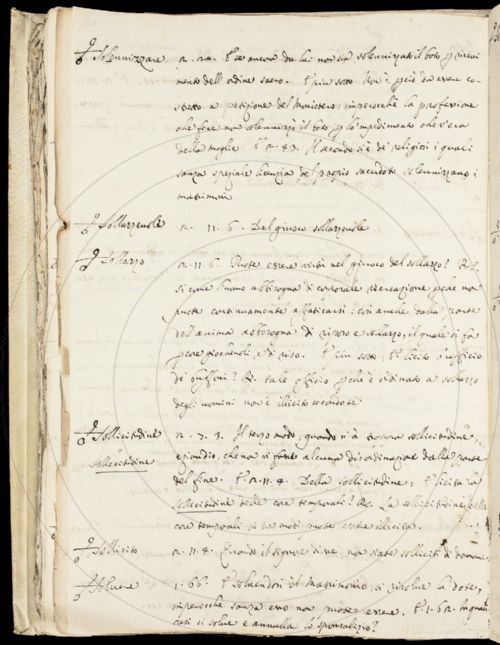 Solennizzare n. 22. E se ancora da lui non sia solennizzato il voto
mento dell'ordine sacro. E più sotto Non è perciò da esser co-
stretto a petizione del Monistero: imperocchè la professione
che fece non solennizzò il voto per lo impedimento che v'era
della moglie. E n. 43. Il secondo si è de' religiosi i quai:
sanza speziale licenza del proprio sacerdote solennizzano i
matrimoni
Sollazzevole n. 11. 6. Del giuoco sollazzevole
Sollazzo n. 11. 6. Puote essere vizio nel giuoco del sollazzo?
si come l'uomo abbisogna di corporale recreazione perchè non
puote continuamente affaticarsi: così anche dalla parte
dell'anima abbisogna di riposo e sollazzo, il quale si fa
per e di riso. E più sotto: E licito l'uficio
de' buffoni? tale officio perch'è ordinato a sollazzo
degli uomini non è illicito secondo se
Sollicitudine n. 7. 3. Il terzo modo, quando v'à troppa sollicitudine
sollecitudine eziandio, che non vi fosse alcuna disordinazione dalla parte
del fine. E n. 11. 4. Della sollicitudine: È licita la
sollecitudine delle cose temporali? La sollicitudine delle
cose temporali in tre modi puote essere illicita.
Sollicito n. 11. 4. Quando il signore dice, non siate solliciti di domane
Solvere 1. 66. E solvendosi il Matrimonio, si risolve la dote,
imperocchè sanza esso non puote essere. E 1. 62. In quanti
casi si solve e annulla lo sponsalizio?